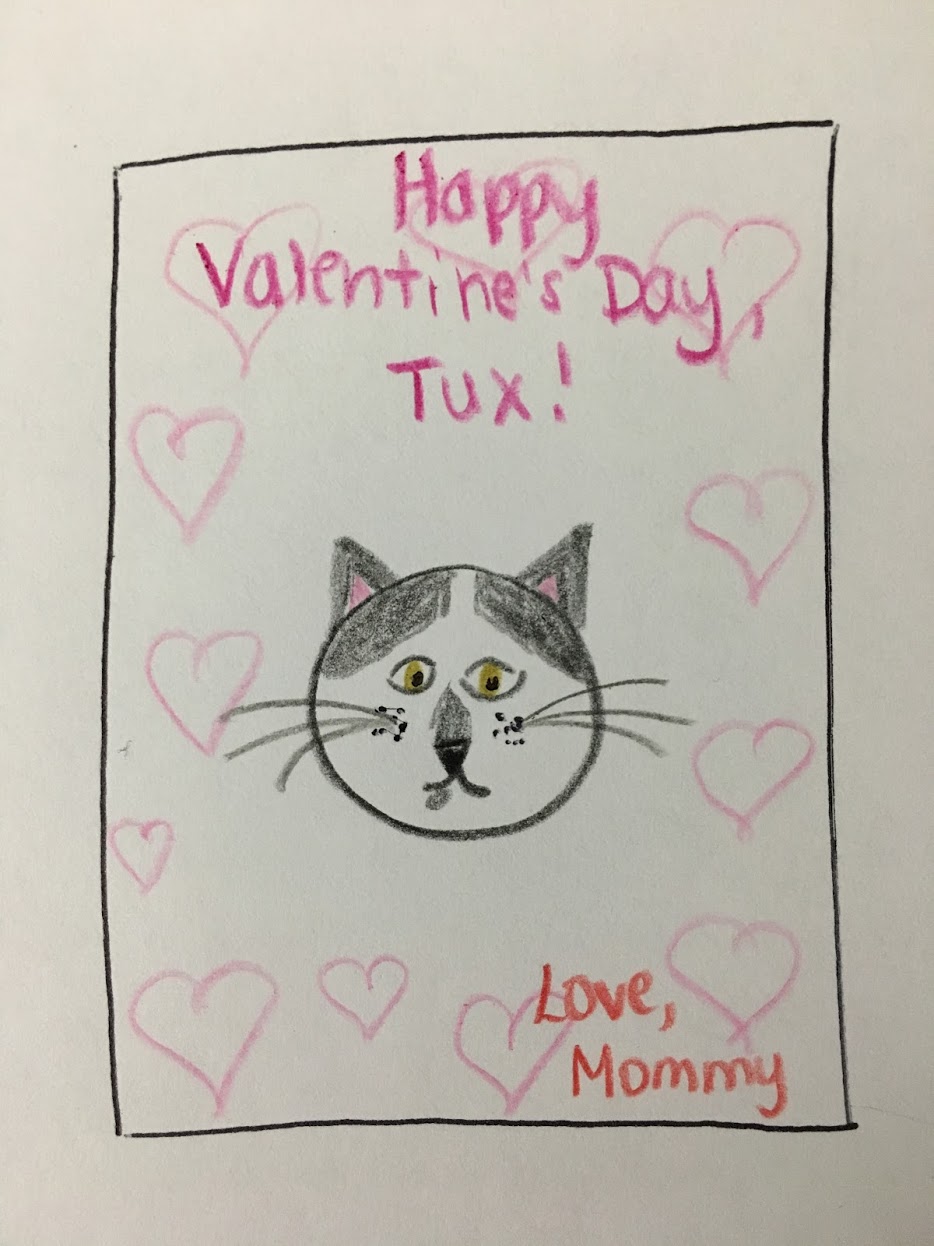 Happy
Valentine's Day,
Tux!
Love,
Mommy